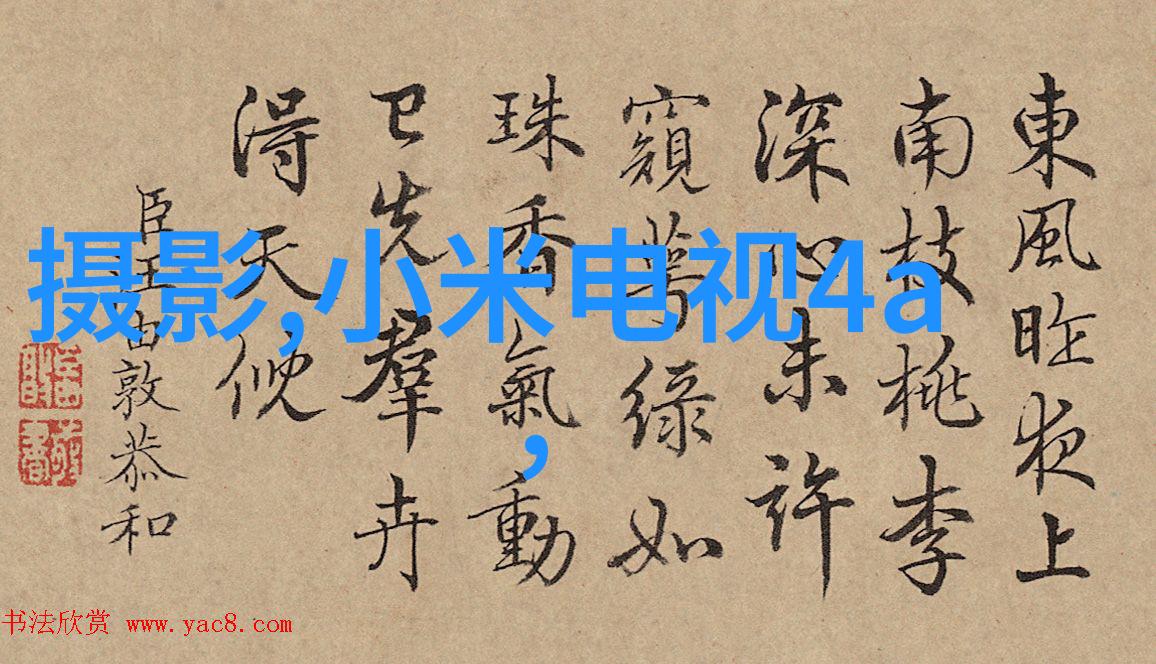 東風昨夜上
南枝桃李
深心未許
窺萼綠如
珠香氣動
已先羣卉
得天倪
臣汪由敦恭和
摄影,小米电视4a
,
书法欣赏 www.yac8.com